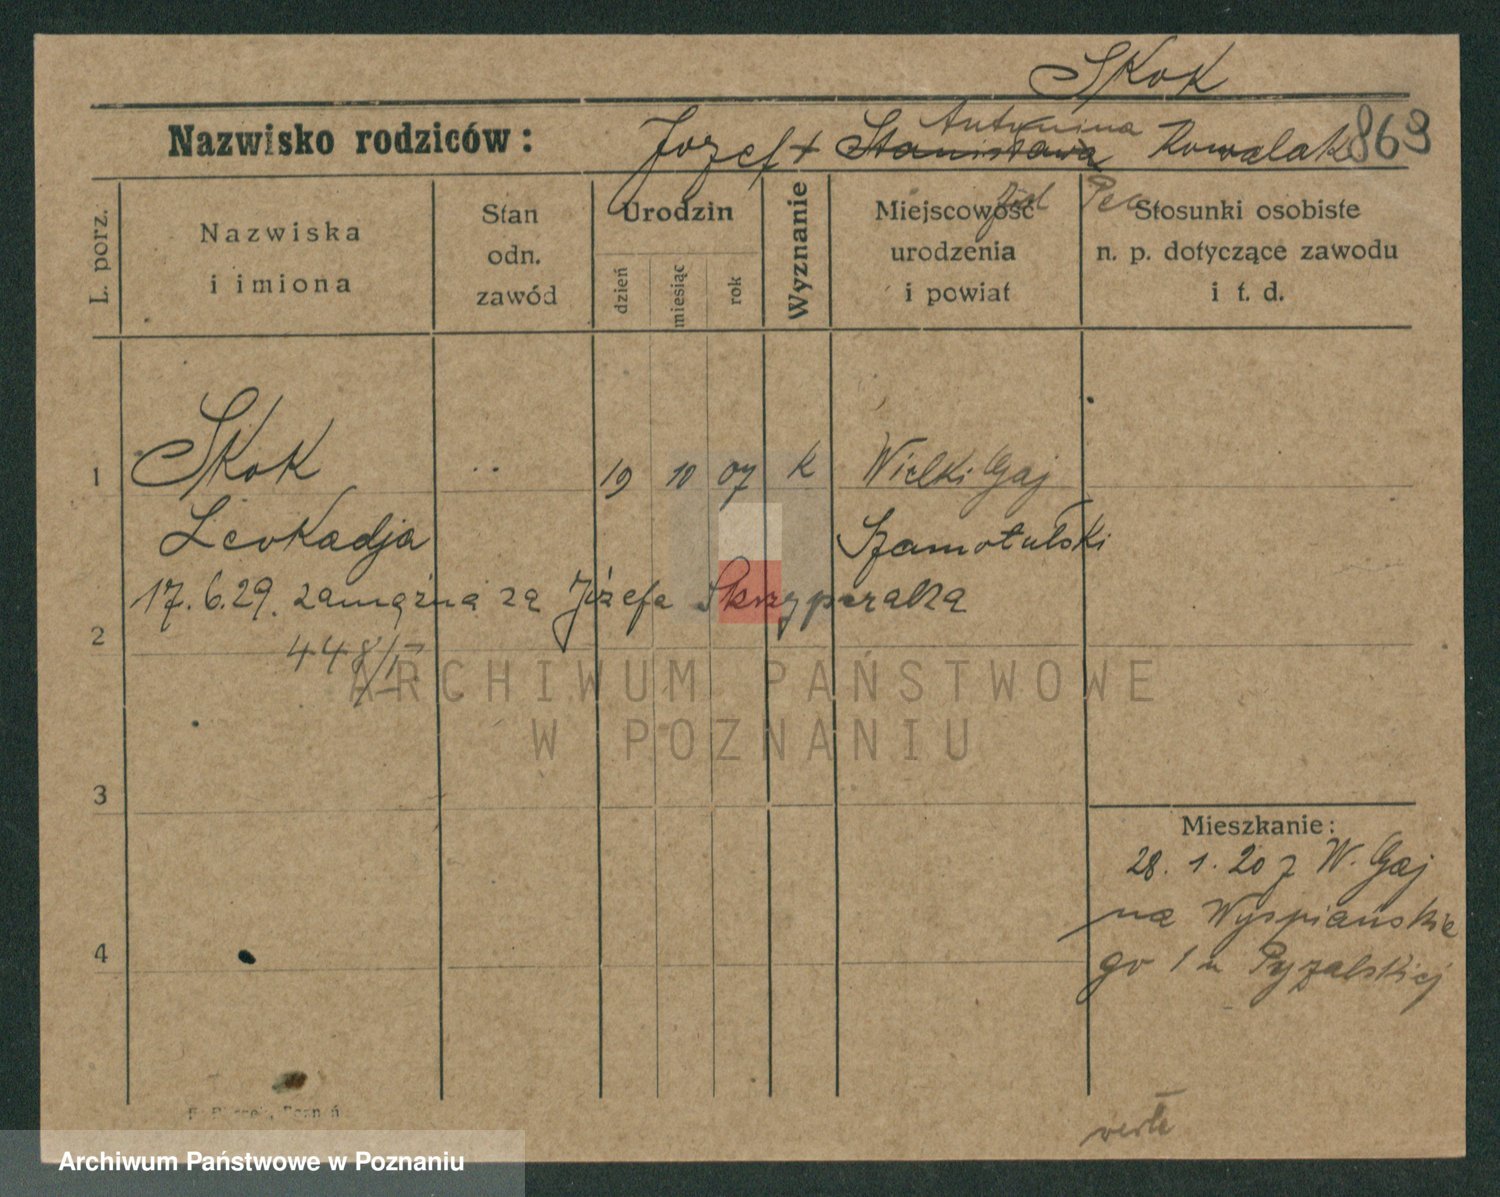 Skok
Nazwisko rodziców: Józef + Stanisława Antonina Kowalak 869
L. porz.
Nazwiska i imiona
Stan odn. zawód
Urodzin
dzień
miesiąc
rok
Wyznanie
Miejscowość urodzenia i powiat
Stosunki osobiste n. p. dotyczące zawodu i t. d.
1 Skok 19 10 07 k Wielki Gaj
Leokadja Szamotulski
17. 6. 29. zamężna za Józefa Skrzypczaka
2
448/
3
Mieszkanie:
28. 1. 20 z W. Gaj
na Wyspiańskie
4
go 1 u Pyzalskiej
verte
Archiwum Państwowe w Poznaniu
ARCHIWUM PAŃSTWOWE
W POZNANIU